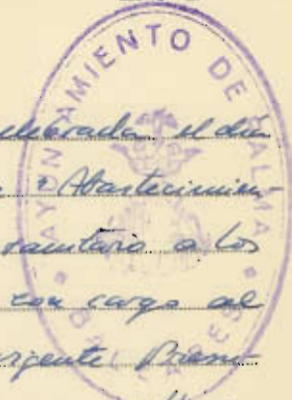 AYUNTAMIENTO DE PALMA
* BALEARES *
celebrada el día
Abastecimien-
sanitaro a los
con cargo al
vigente Presu-